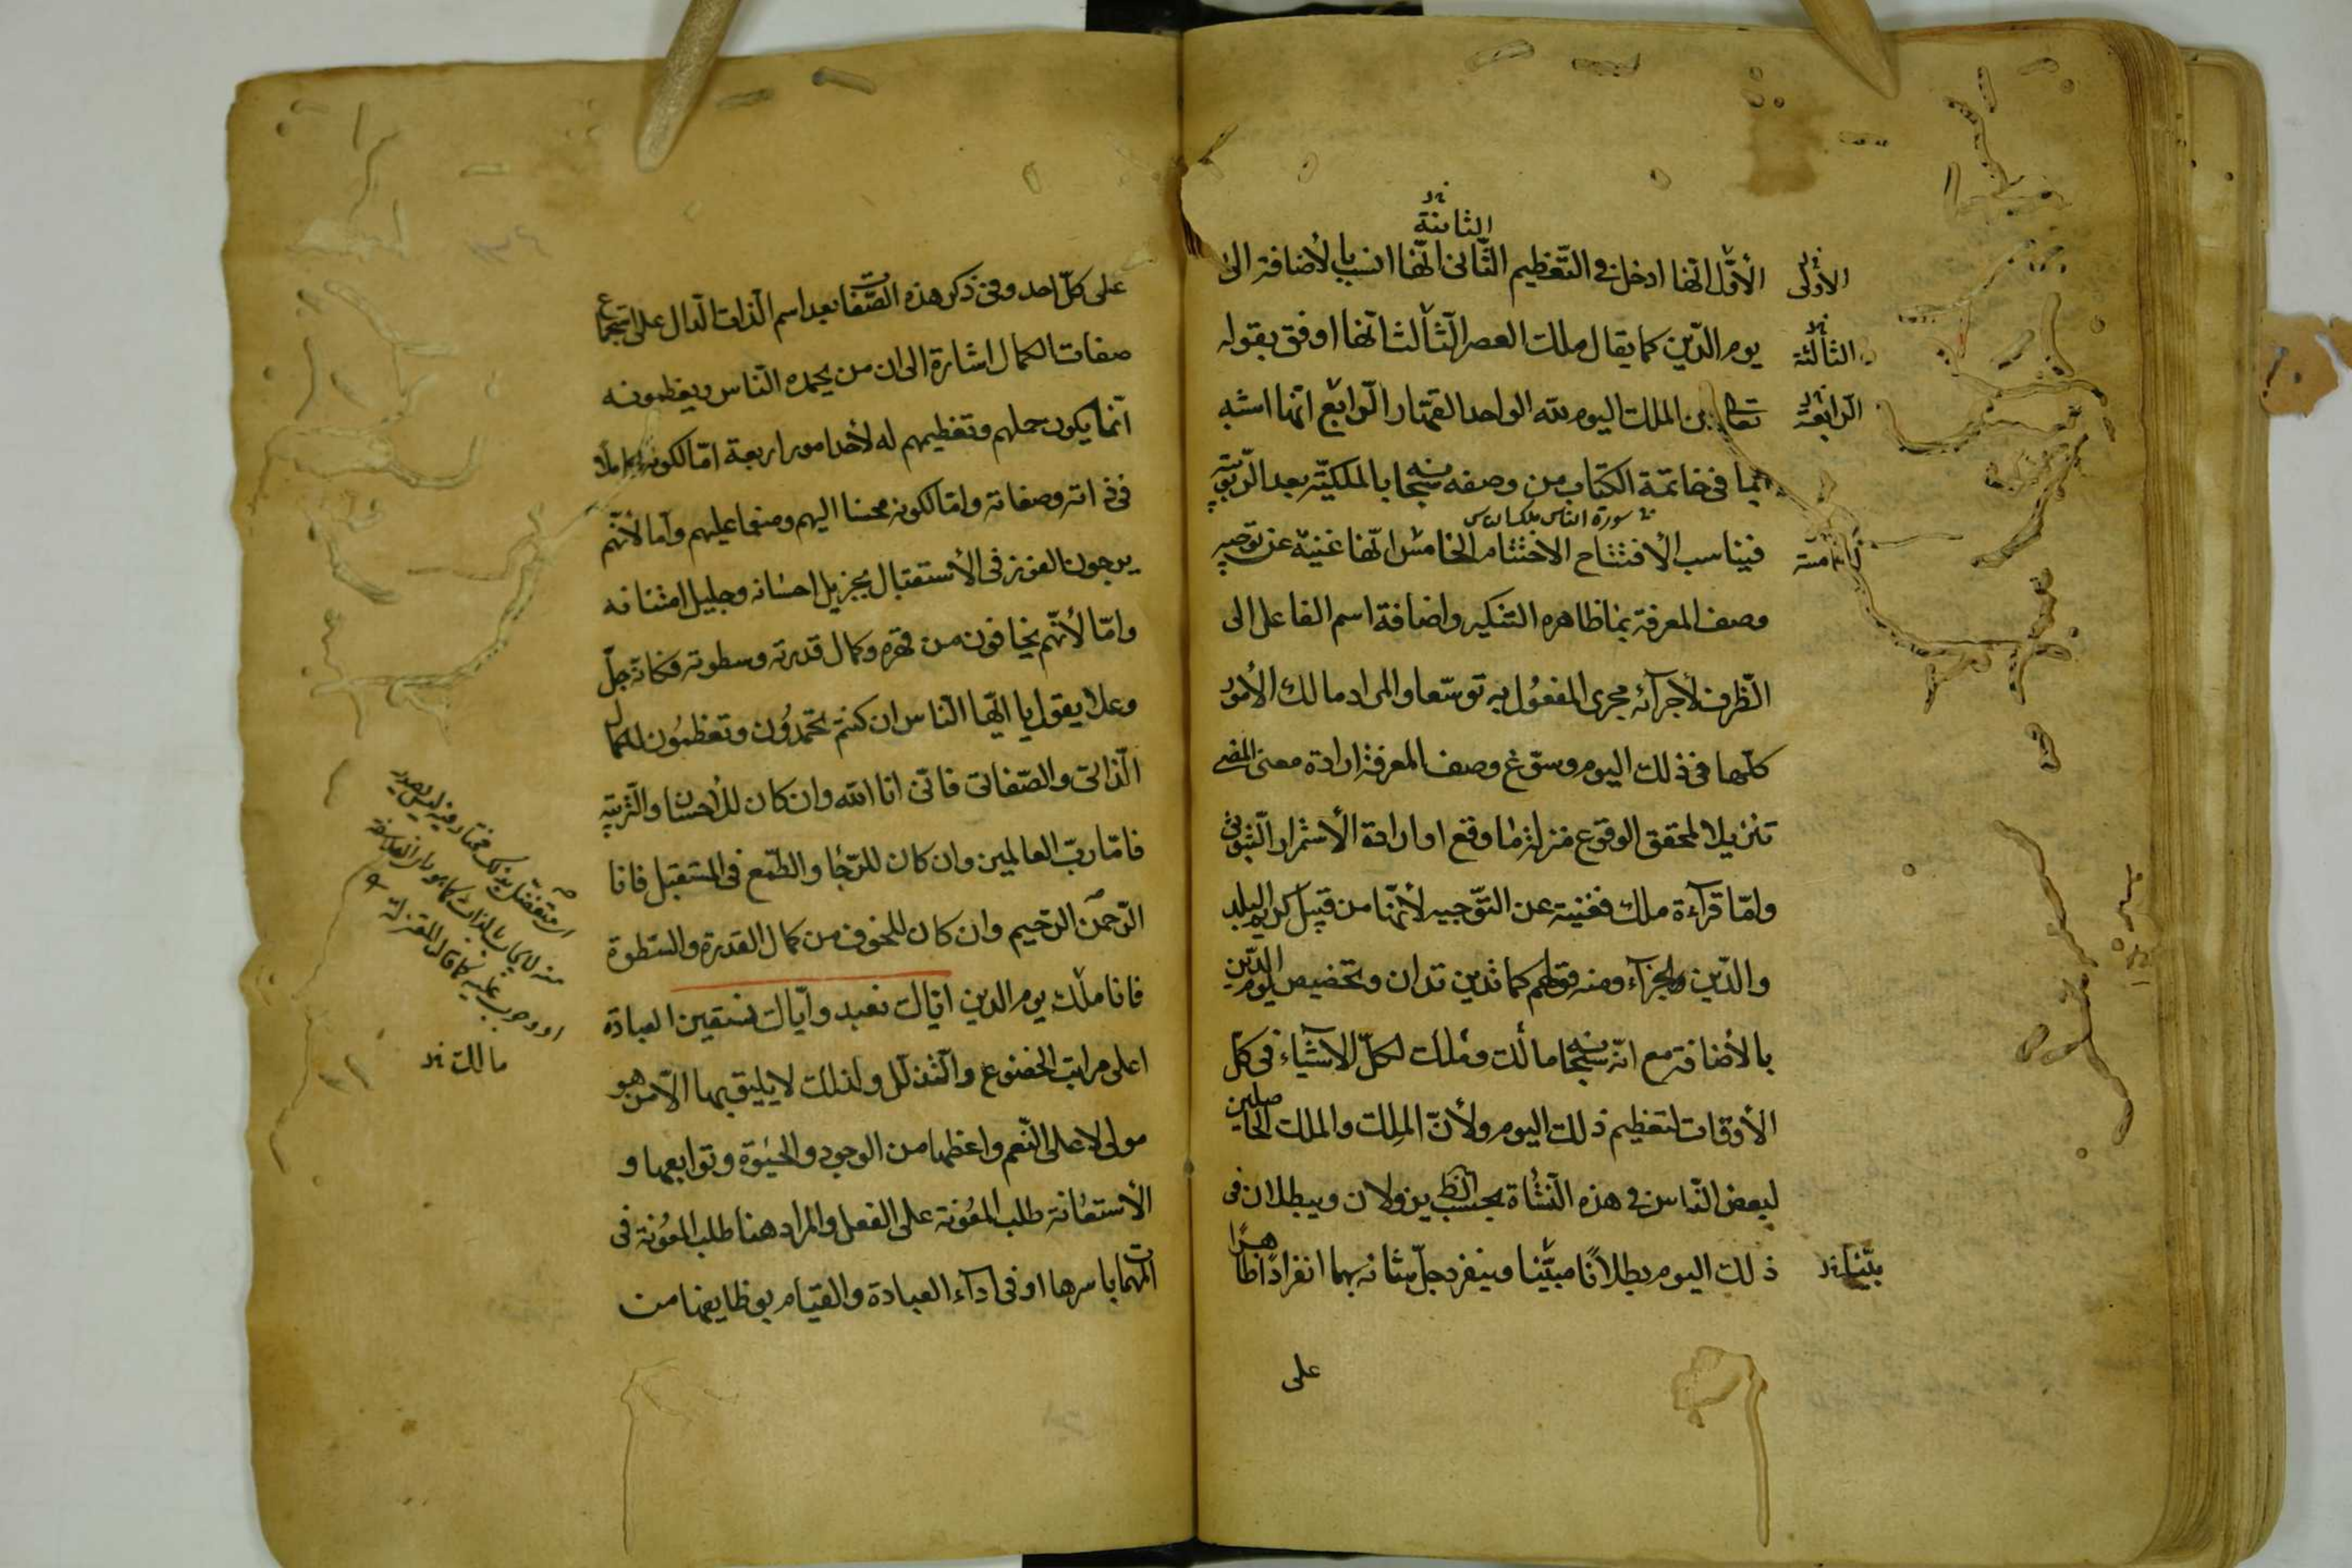 الثانية نر
الأوّل انّها ادخل في التّعظيم الثّاني انّها انسب بالأضافة الى
يوم الدّين كما يقال ملك العصر الثّالث انّها اوفق بقوله
تعالى لمن الملك اليوم لله الواحد القهّار الرّابع انّها اشبه
بما في خاتمة الكتاب من وصفه سبحانه بالملكيّة بعد الرّبوبيّة
سورة الناس ملك الناس
فيناسب الأفتتاح الاختتام الخامس انّها غنيّة عن توجيه
وصف المعرفة بما ظاهره التنكير واضافة اسم الفاعل الى
الظّرف لأجرآئه مجرى المفعُول به توسّعا والمراد مالك الأمُور
كلّها في ذلك اليوم وسوّغ وصف المعرفة ارادة معنى المضي
تنزيلا لمحقق الوقوع منزلة ما وقع او ارادة الأستمرار الثّبوتي
وامّا قرآءة ملك فغنية عن التّوجيه لأنّها من قبيل كريم البلد
والدّين والجزآء ومنه قولهم كما تدين تدان وتخصيص يوم الدّين
بالأضافة مع انّه سبحانه مالك وملك لكلّ الأشيآء في كلّ
الأوقات لتعظيم ذلك اليوم ولأنّ المِلك والملك الحاصلين
لبعض النّاس في هذه النّشأة بحسب الظاهر يزولان ويبطلان في
ذلك اليوم بطلانًا مبيّنا وينفرد جلّ شانه بهما انفرادًا ظاهرًا
على
الأولى نر
الثالثة نر
الرابعة نر
الخامسة
بيّنا نر
على كلّ احد وفي ذكر هذه الصّفات بعد اسم الذات الدّال على استجماع
صفات الكمال اشارة الى ان من يحمده النّاس ويعظمونه
انّما يكون حملهم وتعظيمهم له لأحد امور اربعة امّا لكونه كاملا
في ذاته وصفاته وامّا لكونه محسنا اليهم ومنعما عليهم وامّا لأنّهم
يرجون الفوز في الأستقبال بجزيل احسانه وجليل امتنانه
وامّا لأنّهم يخافون من قهره وكمال قدرته وسطوته فكانّه جلّ
وعلا يقول يا ايّها النّاس ان كنتم تحمدُون وتعظمُون للكمال
الذّاتي والصّفاتي فانّي انا الله وان كان للأحسان والتّربية
فانّا ربّ العالمين وان كان للرّجا والطّمع في المستقبل فانا
الرّحمن الرّحيم وان كان للخوف من كمال القدرة والسّطوة
فانا ملك يوم الدين ايّاك نعبد وايّاك نستعين العبادة
اعلى مراتب الخضوع والتّذلّل ولذلك لا يليق بها الّا من هو
مولى لاعلى النّعم واعظمها من الوجود والحيٰوة وتوابعها و
الأستعانة طلب المعُونة على الفعل والمراد هنا طلب المعُونة في
المهمات باسرها او في اداء العبادة والقيام بوظايفها من
اي متفضّل بذلك مختار فيه ليس يصدر
منه لايجاب بالذات كما هو راي الفلاسفة
او وجوب عليه كما قالت المعتزلة
مالك نر